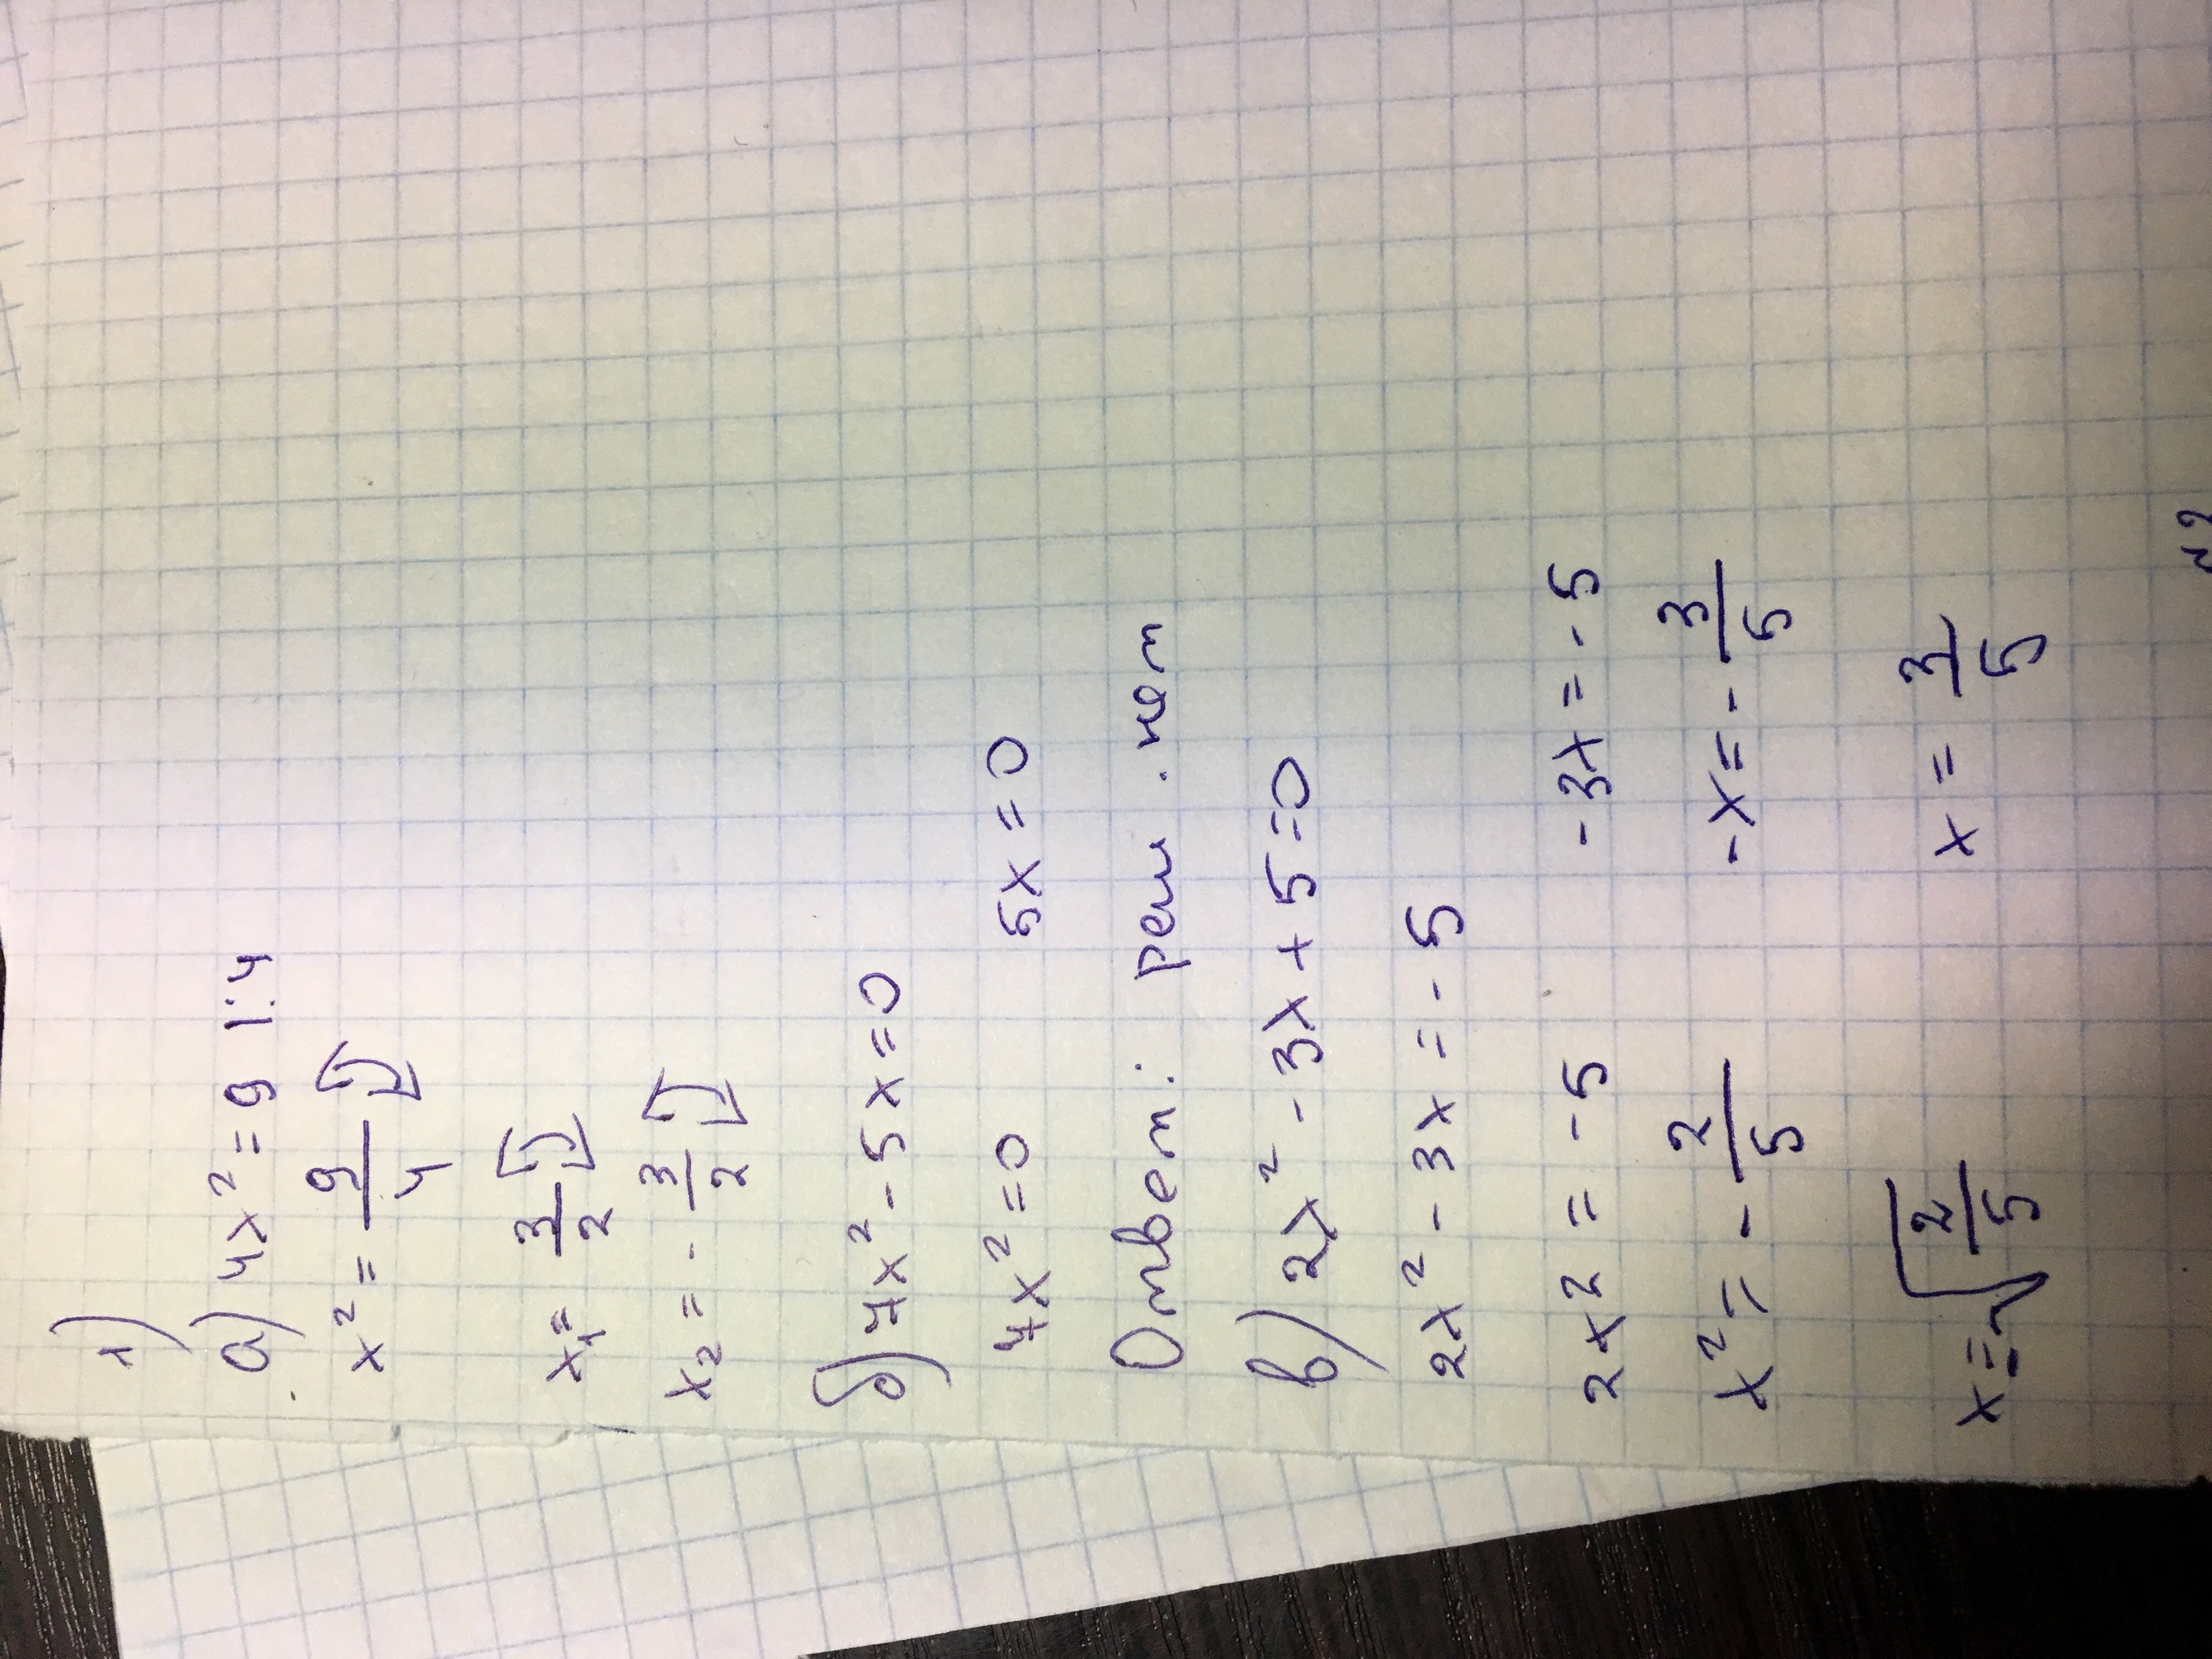 1)
а) 4x² = 9 |:4
x² = 9/4
x₁ = 3/2
x₂ = - 3/2
б) 7x² - 5x = 0
7x² = 0 5x = 0
Ответ: реш. нет
в) 2x² - 3x + 5 = 0
2x² - 3x = - 5
2x² = - 5 - 3x = - 5
x² = - 2/5 - x = - 3/5
x = √2/5 x = 3/5